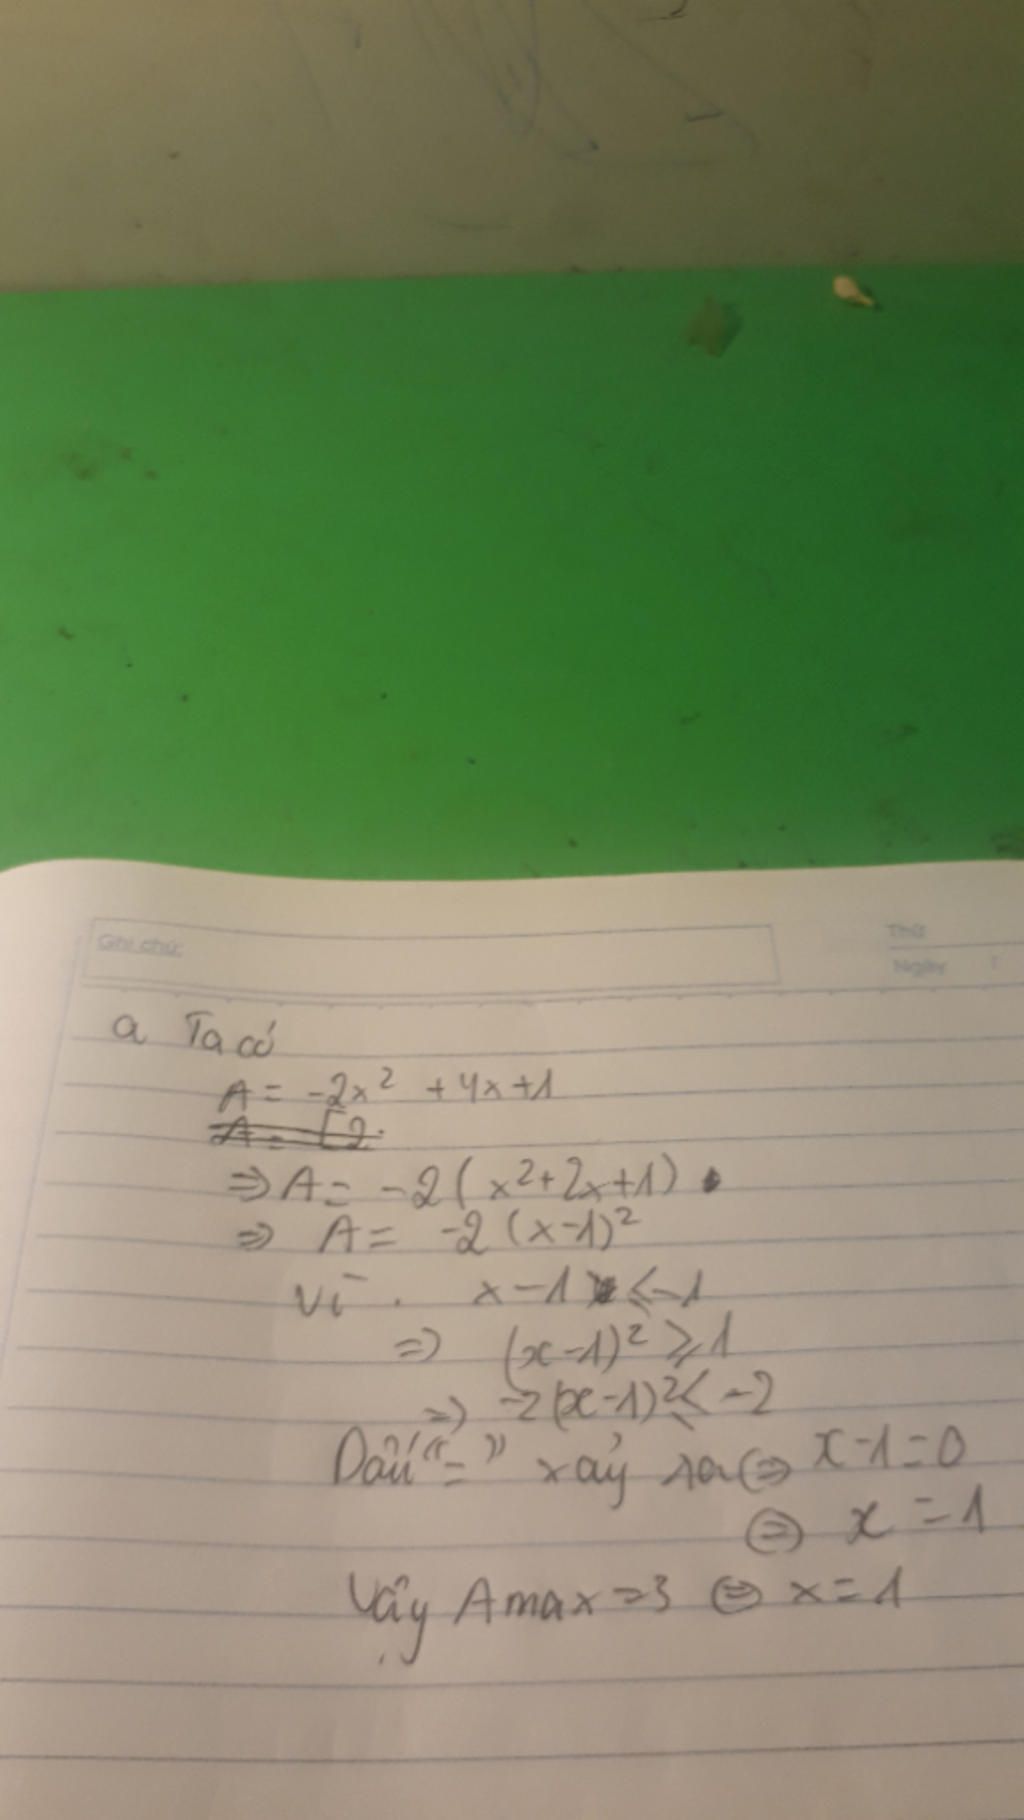 Ghi chú:
Thứ
Ngày
a Ta có
A = -2x² + 4x + 1
A = [2.
=> A = -2(x² + 2x + 1)
=> A = -2(x-1)²
Vì . x - 1 ≤ -1
=> (x-1)² ≥ 1
=> -2(x-1)² ≤ -2
Dấu "=" xảy ra <=> x - 1 = 0
<=> x = 1
Vậy Amax = 3 <=> x = 1